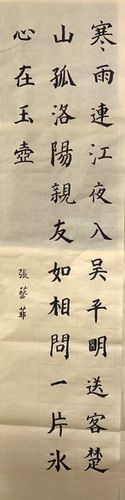 寒雨連江夜入吴平明送客楚
山孤洛陽親友如相問一片氷
心在玉壺
張藝菲